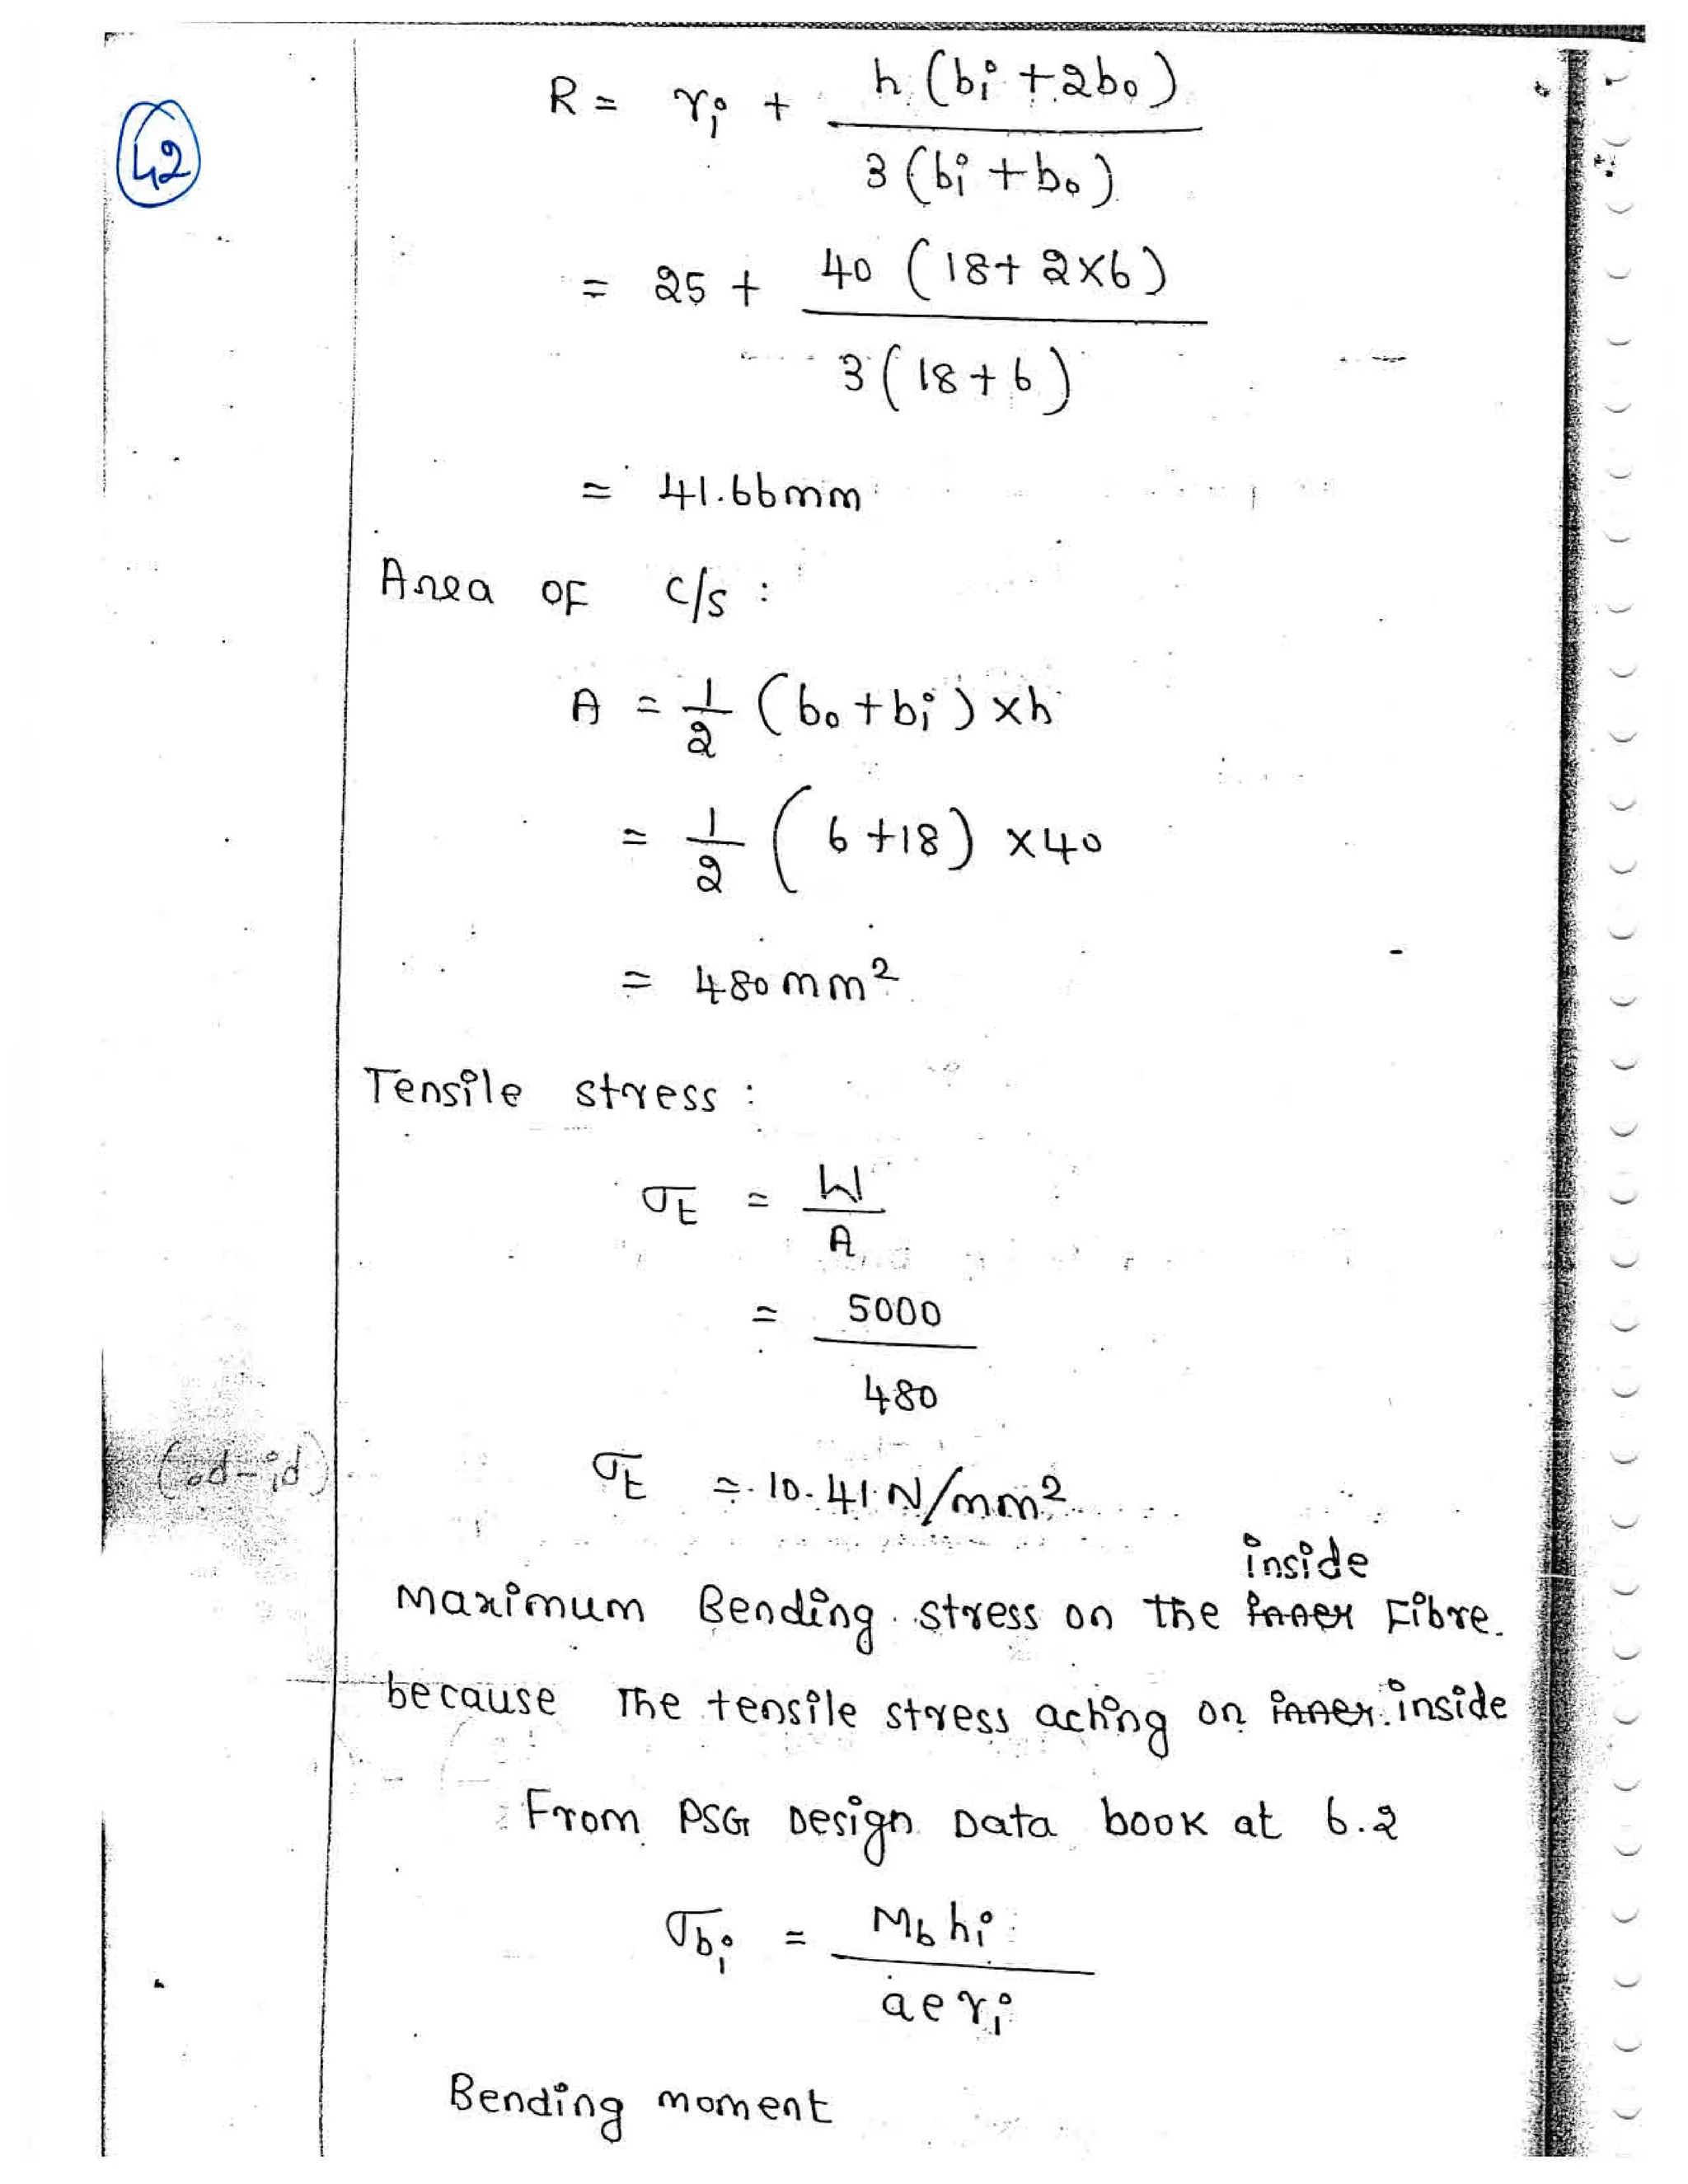 42
R = ri + h (bi + 2bo)
3 (bi + bo)
= 25 + 40 (18 + 2×6)
3 (18 + 6)
= 41.66mm
Area OF c/s :
A = 1/2 (bo + bi) × h
= 1/2 (6 + 18) × 40
= 480 mm²
Tensile stress :
σt = W
A
= 5000
480
σt = 10.41 N/mm²
inside
Maximum Bending stress on the inner Fibre.
because The tensile stress acting on inner inside
From PSG Design Data book at 6.2
σbi = Mb hi
a e ri
Bending moment